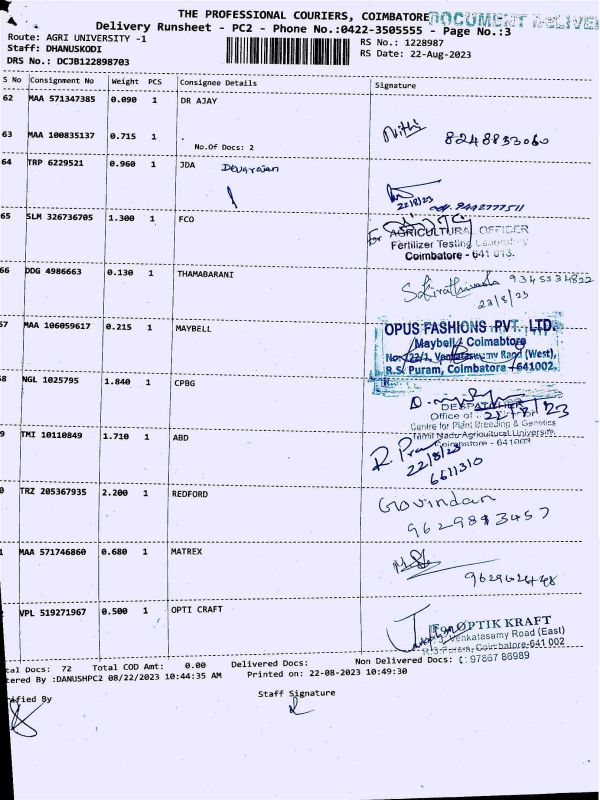 THE PROFESSIONAL COURIERS, COIMBATORE DOCUMENT DELIVE
Delivery Runsheet - PC2 - Phone No.:0422-3505555 - Page No.:3
Route: AGRI UNIVERSITY -1
Staff: DHANUSKODI
DRS No.: DCJB122898703
RS No.: 1228987
RS Date: 22-Aug-2023
S No Consignment No Weight PCS Consignee Details Signature
62 MAA 571347385 0.090 1 DR AJAY
63 MAA 100835137 0.715 1 .
No.Of Docs: 2
Nithi 8248833060
64 TRP 6229521 0.960 1 JDA Devarajan
22/8/23 9442777511
65 SLM 326736705 1.300 1 FCO
For AGRICULTURAL OFFICER
Fertilizer Testing Laboratory
Coimbatore - 641 013.
66 DDG 4986663 0.130 1 THAMABARANI
9345534822
22/8/23
57 MAA 106059617 0.215 1 MAYBELL
OPUS FASHIONS PVT. LTD.
Maybell Coimabtore
No. 122/1, Venkatasamy Raod (West),
R.S. Puram, Coimbatore - 641002.
8 NGL 1025795 1.840 1 CPBG
DESPATCHER
Office of
22/8/23
Centre for Plant Breeding & Genetics
Tamil Nadu Agricultural University
Coimbatore - 641003
9 TMI 10110849 1.710 1 ABD
22/8/23
6611310
0 TRZ 205367935 2.200 1 REDFORD
Govindan
9629893457
1 MAA 571746860 0.680 1 MATREX
VPL 519271967 0.500 1 OPTI CRAFT
For OPTIK KRAFT
Venkatasamy Road (East)
R.S. Puram, Coimbatore-641 002
: 97867 86989
al Docs: 72 Total COD Amt: 0.00 Delivered Docs: Non Delivered Docs:
tered By :DANUSHPC2 08/22/2023 10:44:35 AM Printed on: 22-08-2023 10:49:30
ified By Staff Signature